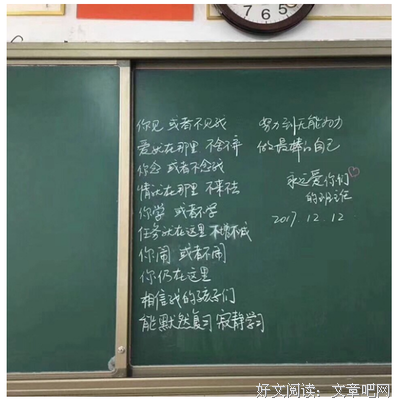 你见 或者不见我
爱就在那里 不舍不弃
你念 或者不念我
情就在那里 不来不去
你学 或者不学
任务就在这里 不增不减
你闹 或者不闹
你仍在这里
相信我的孩子们
能默然复习 寂静学习
努力到无能为力
做最棒的自己
永远爱你们
的班主任
2017.12.12
好文阅读：文章吧网